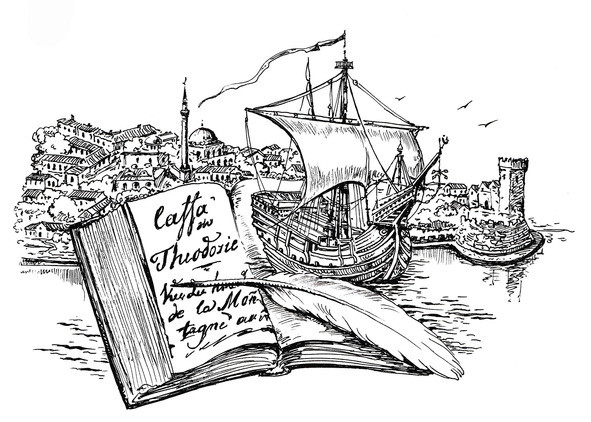 Caffa
ou
Theodosie
Vue du
de la Mon
tagne au